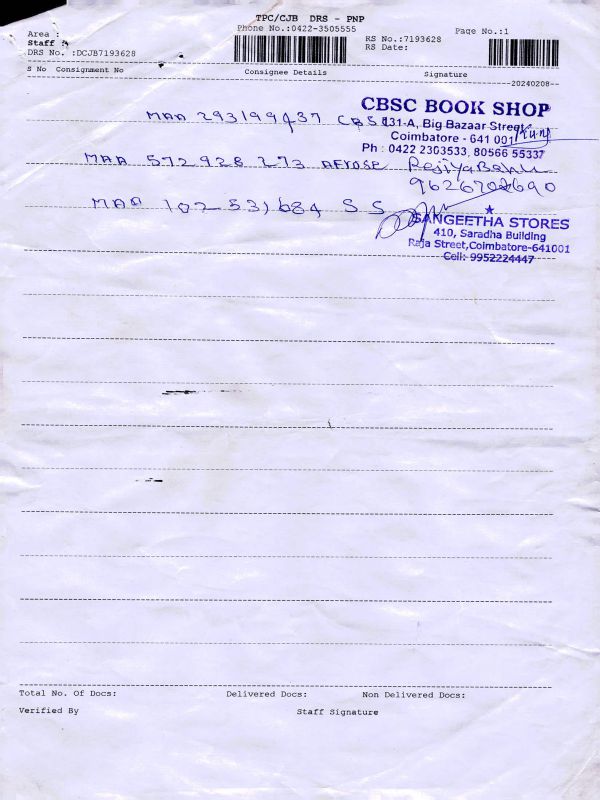 TPC/CJB DRS - PNP
Area :
Phone No.:0422-3505555
Page No.:1
Staff :
RS No.:7193628
DRS No. :DCJB7193628
RS Date:
S No Consignment No Consignee Details Signature
20240208
CBSC BOOK SHOP
MAA 293199437 CBSC
131-A, Big Bazaar Street
Coimbatore - 641 001
Ph : 0422 2303533, 80566 55337
MAA 572928273 AFROSE
MAA 102531684 S S
SANGEETHA STORES
410, Saradha Building
Raja Street,Coimbatore-641001
Cell: 9952224447
Total No. Of Docs: Delivered Docs: Non Delivered Docs:
Verified By Staff Signature